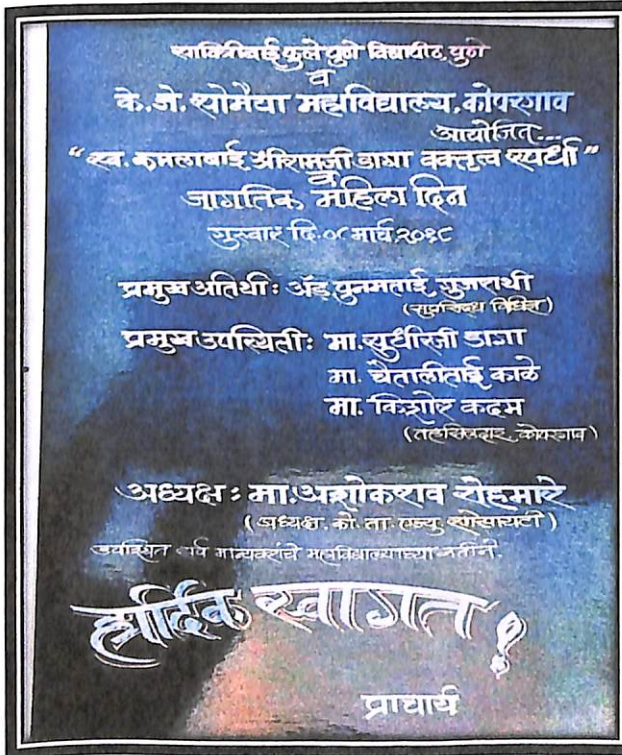 सावित्रीबाई फुले पुणे विद्यापीठ, पुणे
व
के.जे. सोमैया महाविद्यालय, कोपरगाव
आयोजित...
"स्व. कमलाबाई श्रीरामजी डागा वक्तृत्व स्पर्धा"
व
जागतिक महिला दिन
गुरुवार दि.०८ मार्च,२०१८
प्रमुख अतिथी: अ‍ॅड पुनमताई गुजराथी
(सुप्रसिद्ध विधिज्ञ)
प्रमुख उपस्थिती: मा. सुधीरजी डागा
मा. चैतालीताई काळे
मा. किशोर कदम
(तहसिलदार, कोपरगाव)
अध्यक्ष : मा. अशोकराव रोहमारे
(अध्यक्ष. को. ता. एज्यु. सोसायटी)
उपस्थित सर्व मान्यवरांचे महाविद्यालयाच्या वतीने.
हार्दिक स्वागत !
प्राचार्य